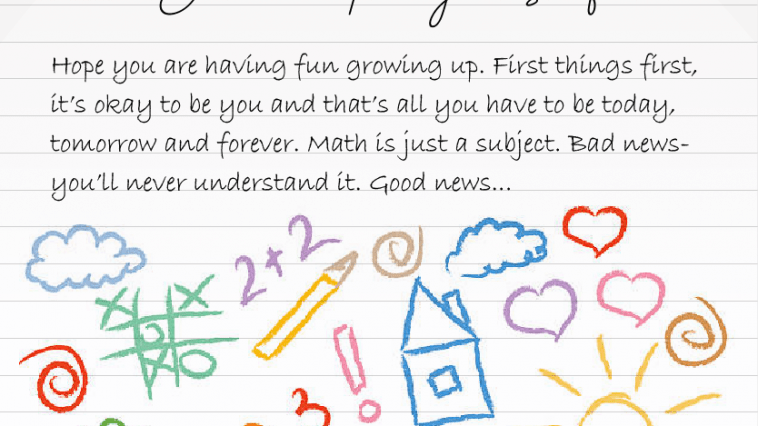 Hope you are having fun growing up. First things first,
it's okay to be you and that's all you have to be today,
tomorrow and forever. Math is just a subject. Bad news-
you'll never understand it. Good news...
2+2
3